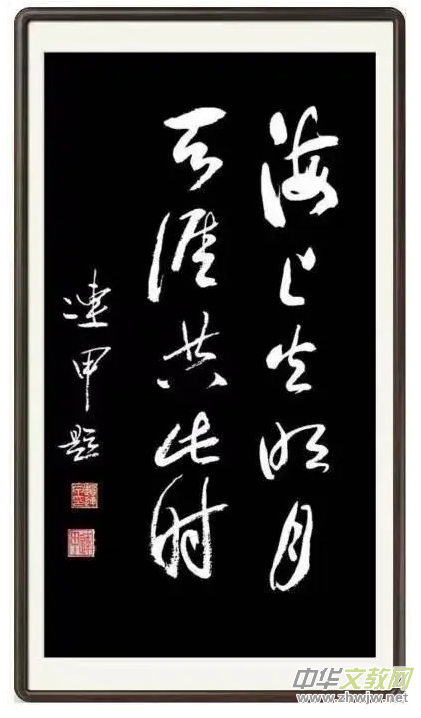 海上生明月
天涯共此时
連甲题
中华文教网
www.zhwjw.net